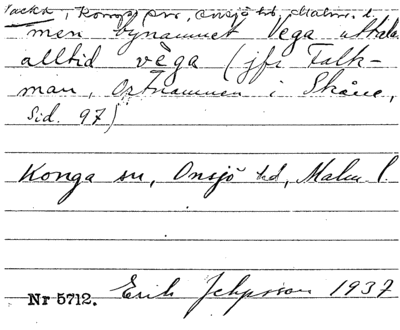 Konga sn, Onsjö hd, Malm. l.
men bynamnet Vega uttalas
alltid vēga (jfr Falk-
man, Ortnamnen i Skåne,
sid. 97)
Konga sn, Onsjö hd, Malm l.
Nr 5712. Erik Jeppsson 1937